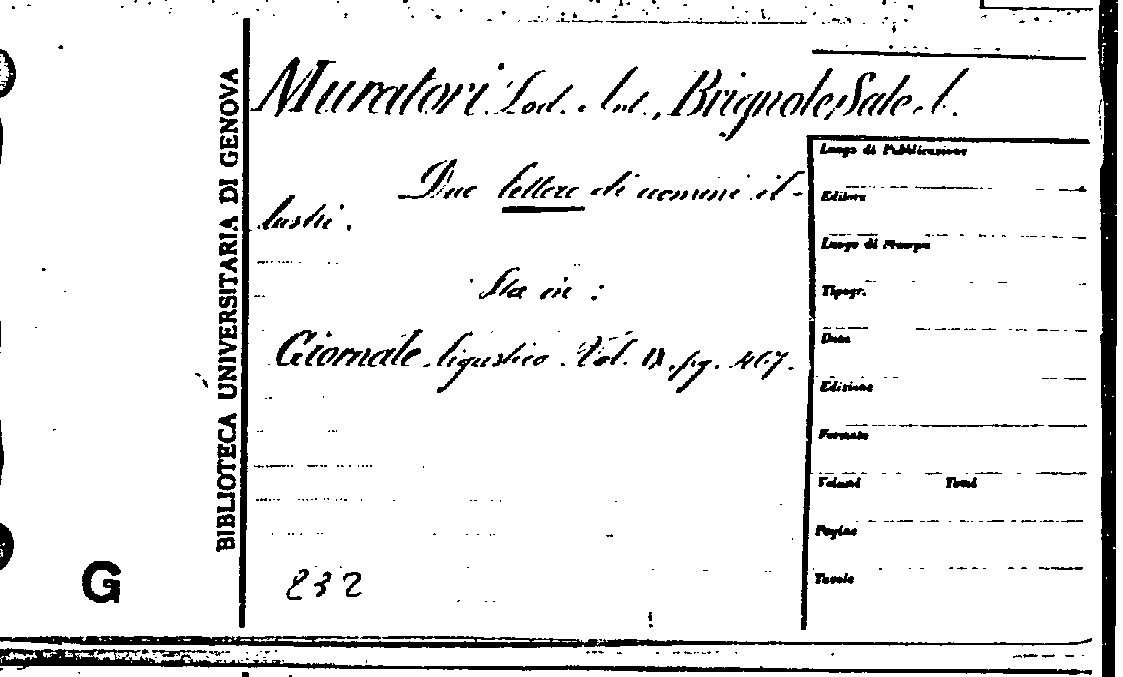 BIBLIOTECA UNIVERSITARIA DI GENOVA
Muratori Lod. Ant., Brignole Sale A.
Due lettere di uomini il-
lustri.
Sta in:
Giornale ligustico. Vol. IX. pg. 467.
232
G
Luogo di Pubblicazione
Editore
Luogo di Stampa
Tipogr.
Data
Edizione
Formato
Volumi Tomi
Pagine
Tavole